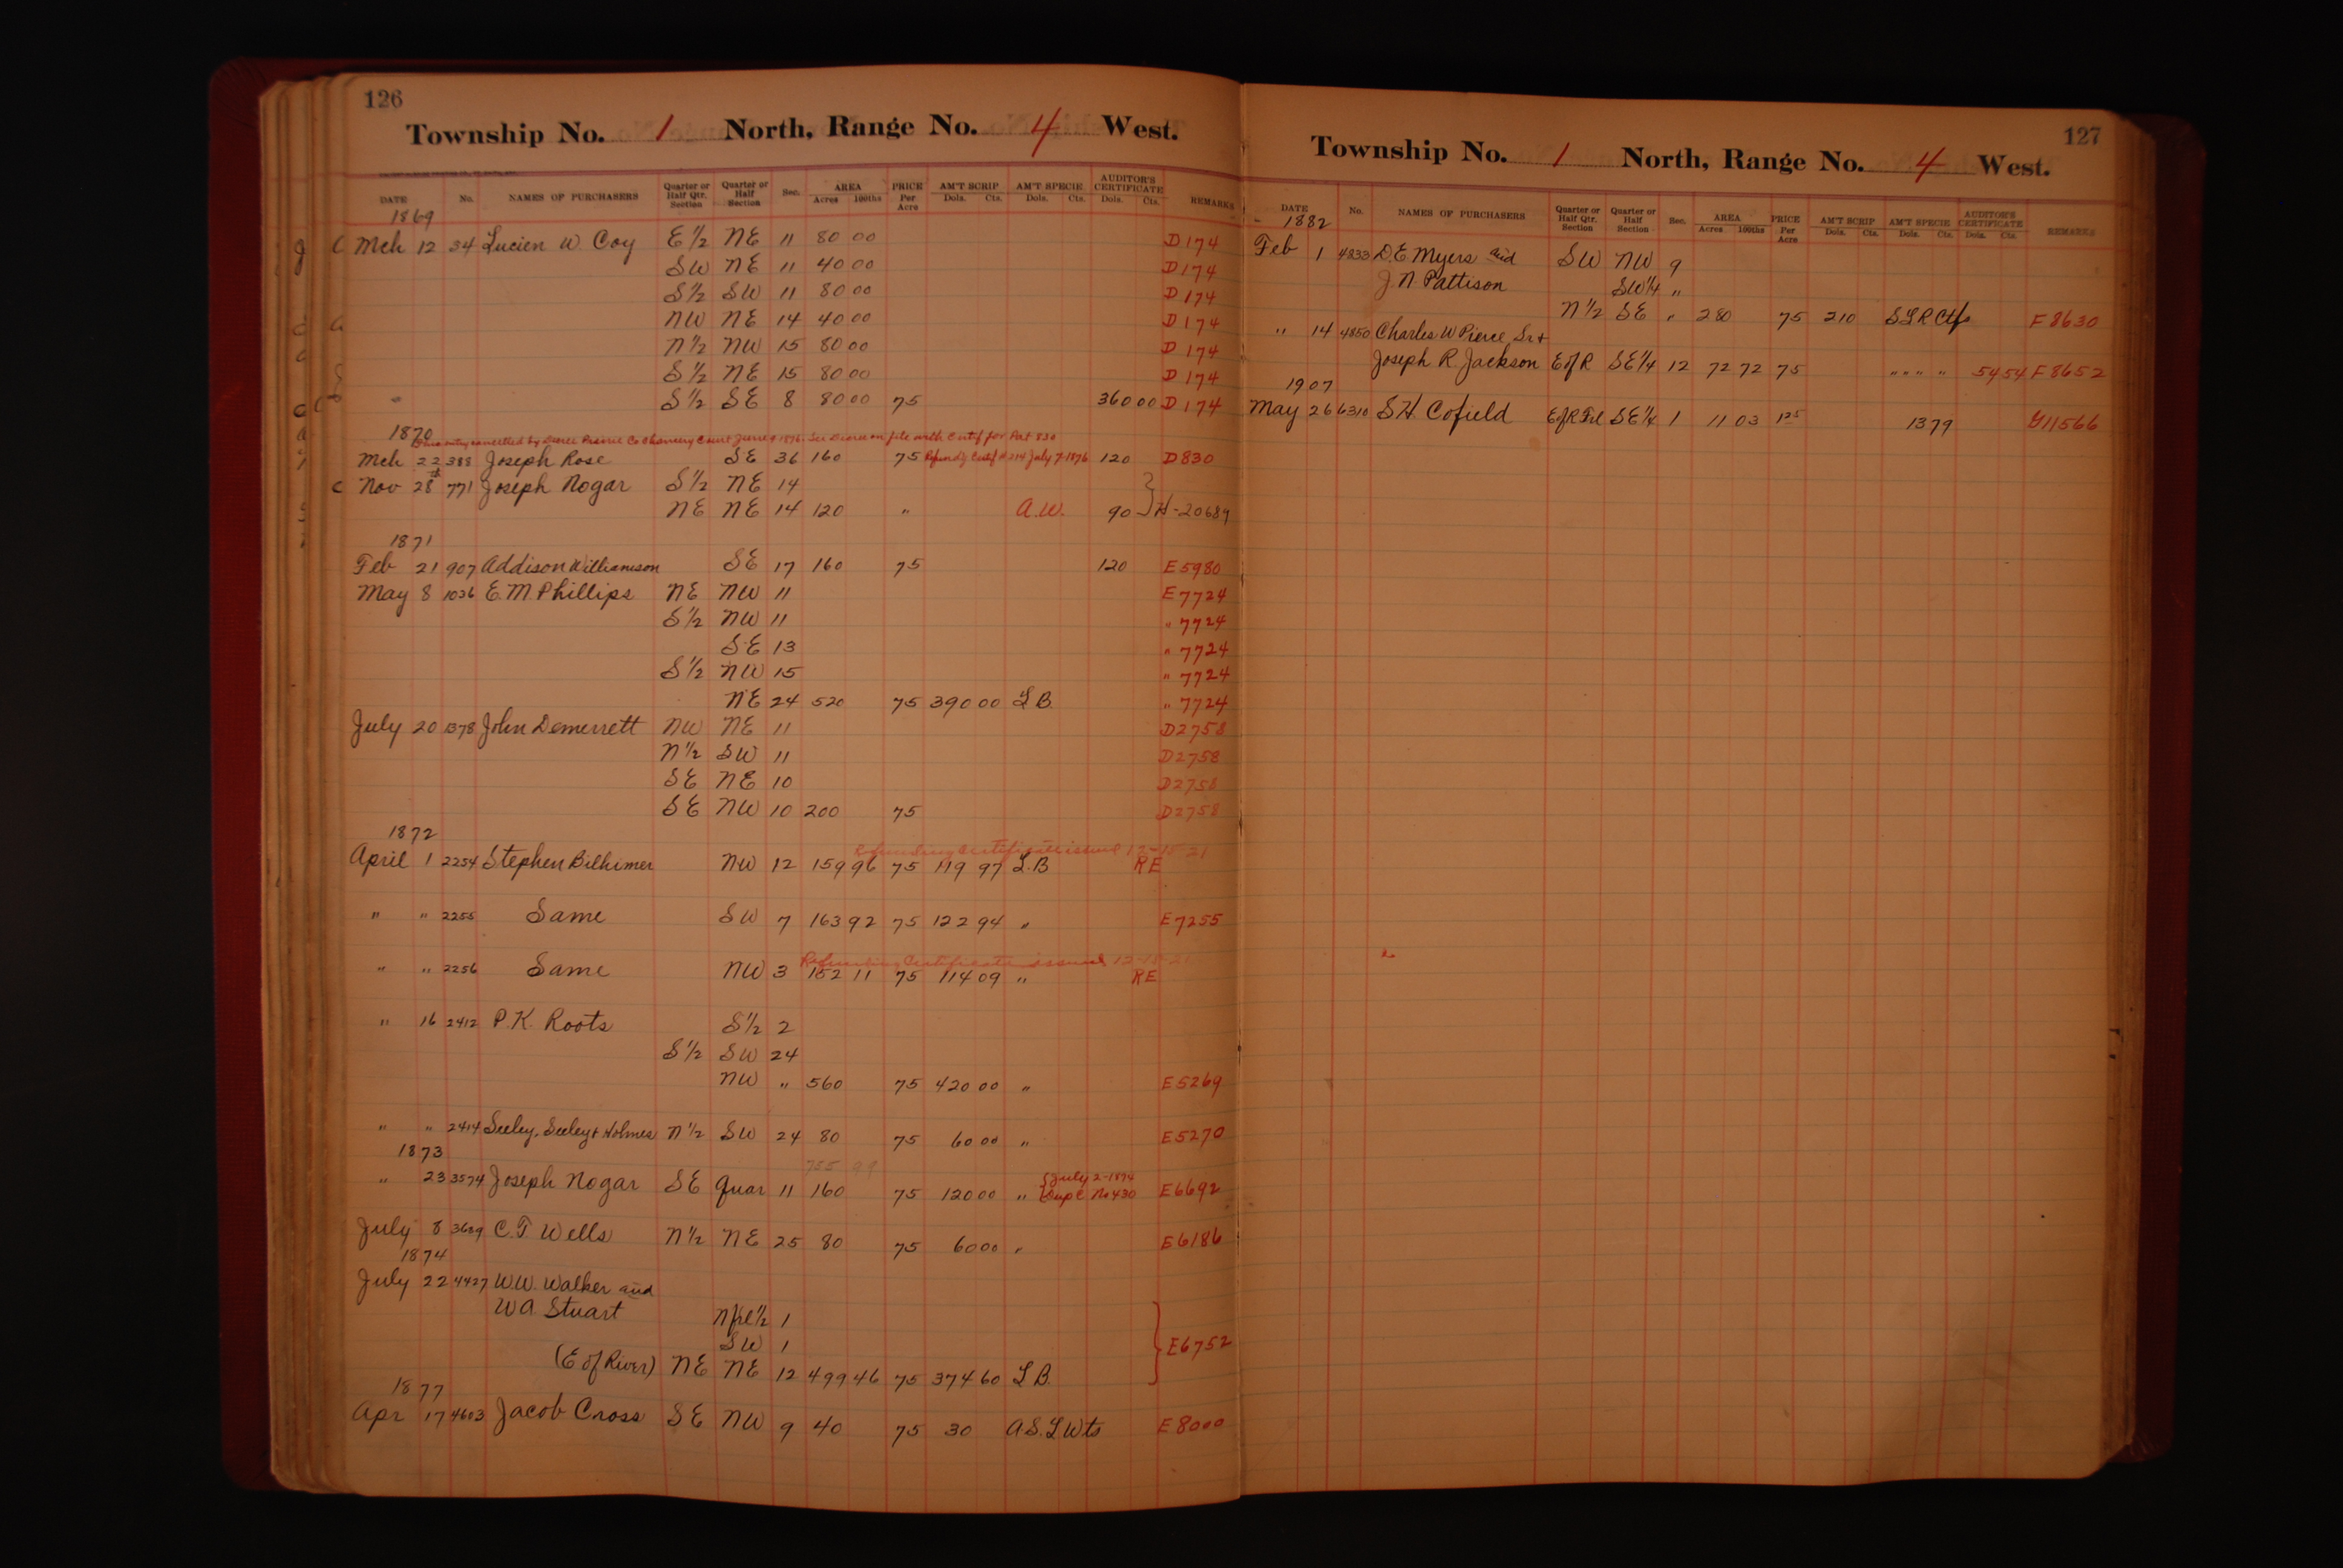 126
Township No. 1 North, Range No. 4 West.
DATE No. NAMES OF PURCHASERS Quarter or Half Qtr. Section Quarter or Half Section Sec. AREA Acres 100ths PRICE Per Acre AM'T SCRIP Dols. Cts. AM'T SPECIE Dols. Cts. AUDITOR'S CERTIFICATE Dols. Cts. REMARKS
1869
Mch 12 34 Lucien W Coy E½ NE 11 80 00 D174
SW NE 11 40 00 D174
S½ SW 11 80 00 D174
NW NE 14 40 00 D174
N½ NW 15 80 00 D174
S½ NE 15 80 00 D174
" S½ SE 8 80 00 75 360 00 D174
1870
Mch 22 388 Joseph Rose SE 36 160 75 Refund'g Certif # 214 July 7-1876 120 D830
Nov 28 771 Joseph Nogar S½ NE 14
NE NE 14 120 " A.W. 90 H-20689
1871
Feb 21 907 Addison Williamson SE 17 160 75 120 E5980
May 8 1036 E.M. Phillips NE NW 11 E7724
S½ NW 11 " 7724
SE 13 " 7724
S½ NW 15 " 7724
NE 24 520 75 390 00 L.B. " 7724
July 20 1378 John Demerrett NW NE 11 D2758
N½ SW 11 D2758
SE NE 10 D2758
SE NW 10 200 75 D2758
1872
Refunding Certificate issued 12-15-21
April 1 2254 Stephen Bilhimer NW 12 159 96 75 119 97 L.B RE
" " 2255 Same SW 7 163 92 75 122 94 " E7255
Refunding Certificate issued 12-15-21
" " 2256 Same NW 3 152 11 75 114 09 " RE
" 16 2412 P.K. Roots S½ 2
S½ SW 24
NW " 560 75 420 00 " E5269
" " 2414 Seeley, Seeley & Holmes N½ SW 24 80 75 60 00 " E5270
1873
755 99
July 2-1894
" 23 3574 Joseph Nogar SE Quar 11 160 75 120 00 " Dupc No 430 E6692
July 8 3689 C.T. Wells N½ NE 25 80 75 60 00 " E6186
1874
July 22 4427 W.W. Walker and
W.A. Stuart N frl ½ 1
SW 1 E6752
(E of River) NE NE 12 499 46 75 374 60 L.B.
1877
Apr 17 4603 Jacob Cross SE NW 9 40 75 30 A.S.L Wts E8000
127
Township No. 1 North, Range No. 4 West.
DATE No. NAMES OF PURCHASERS Quarter or Half Qtr. Section Quarter or Half Section Sec. AREA Acres 100ths PRICE Per Acre AM'T SCRIP Dols. Cts. AM'T SPECIE Dols. Cts. AUDITOR'S CERTIFICATE Dols. Cts. REMARKS
1882
Feb 1 4833 D.E. Myers and SW NW 9
J.N. Pattison SW¼ "
N½ SE " 280 75 210 SLR Ctfs F8630
" 14 4850 Charles W Pierce Sr &
Joseph R. Jackson E of R SE¼ 12 72 72 75 " " " " 54 54 F8652
1907
May 26 6310 S.H. Cofield E of R Frl SE¼ 1 11 03 1 25 13 79 G11566